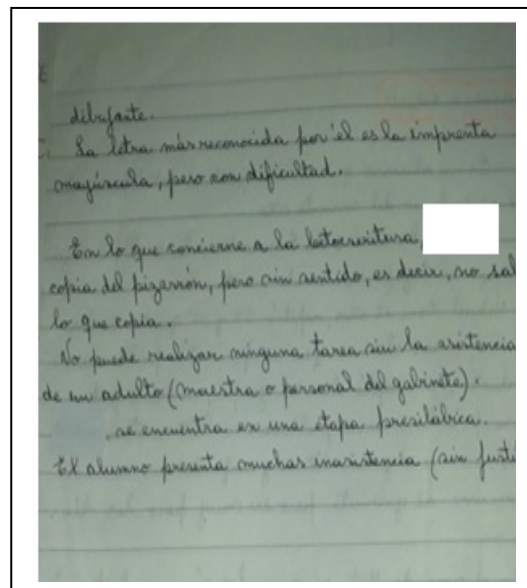 dibujante.
La letra más reconocida por él es la imprenta
mayúscula, pero con dificultad.
En lo que concierne a la lectoescritura,
copia del pizarrón, pero sin sentido, es decir, no sa
lo que copia.
No puede realizar ninguna tarea sin la asistencia
de un adulto (maestra o personal del gabinete).
, se encuentra en una etapa presilábica.
El alumno presenta muchas inasistencia (sin justi